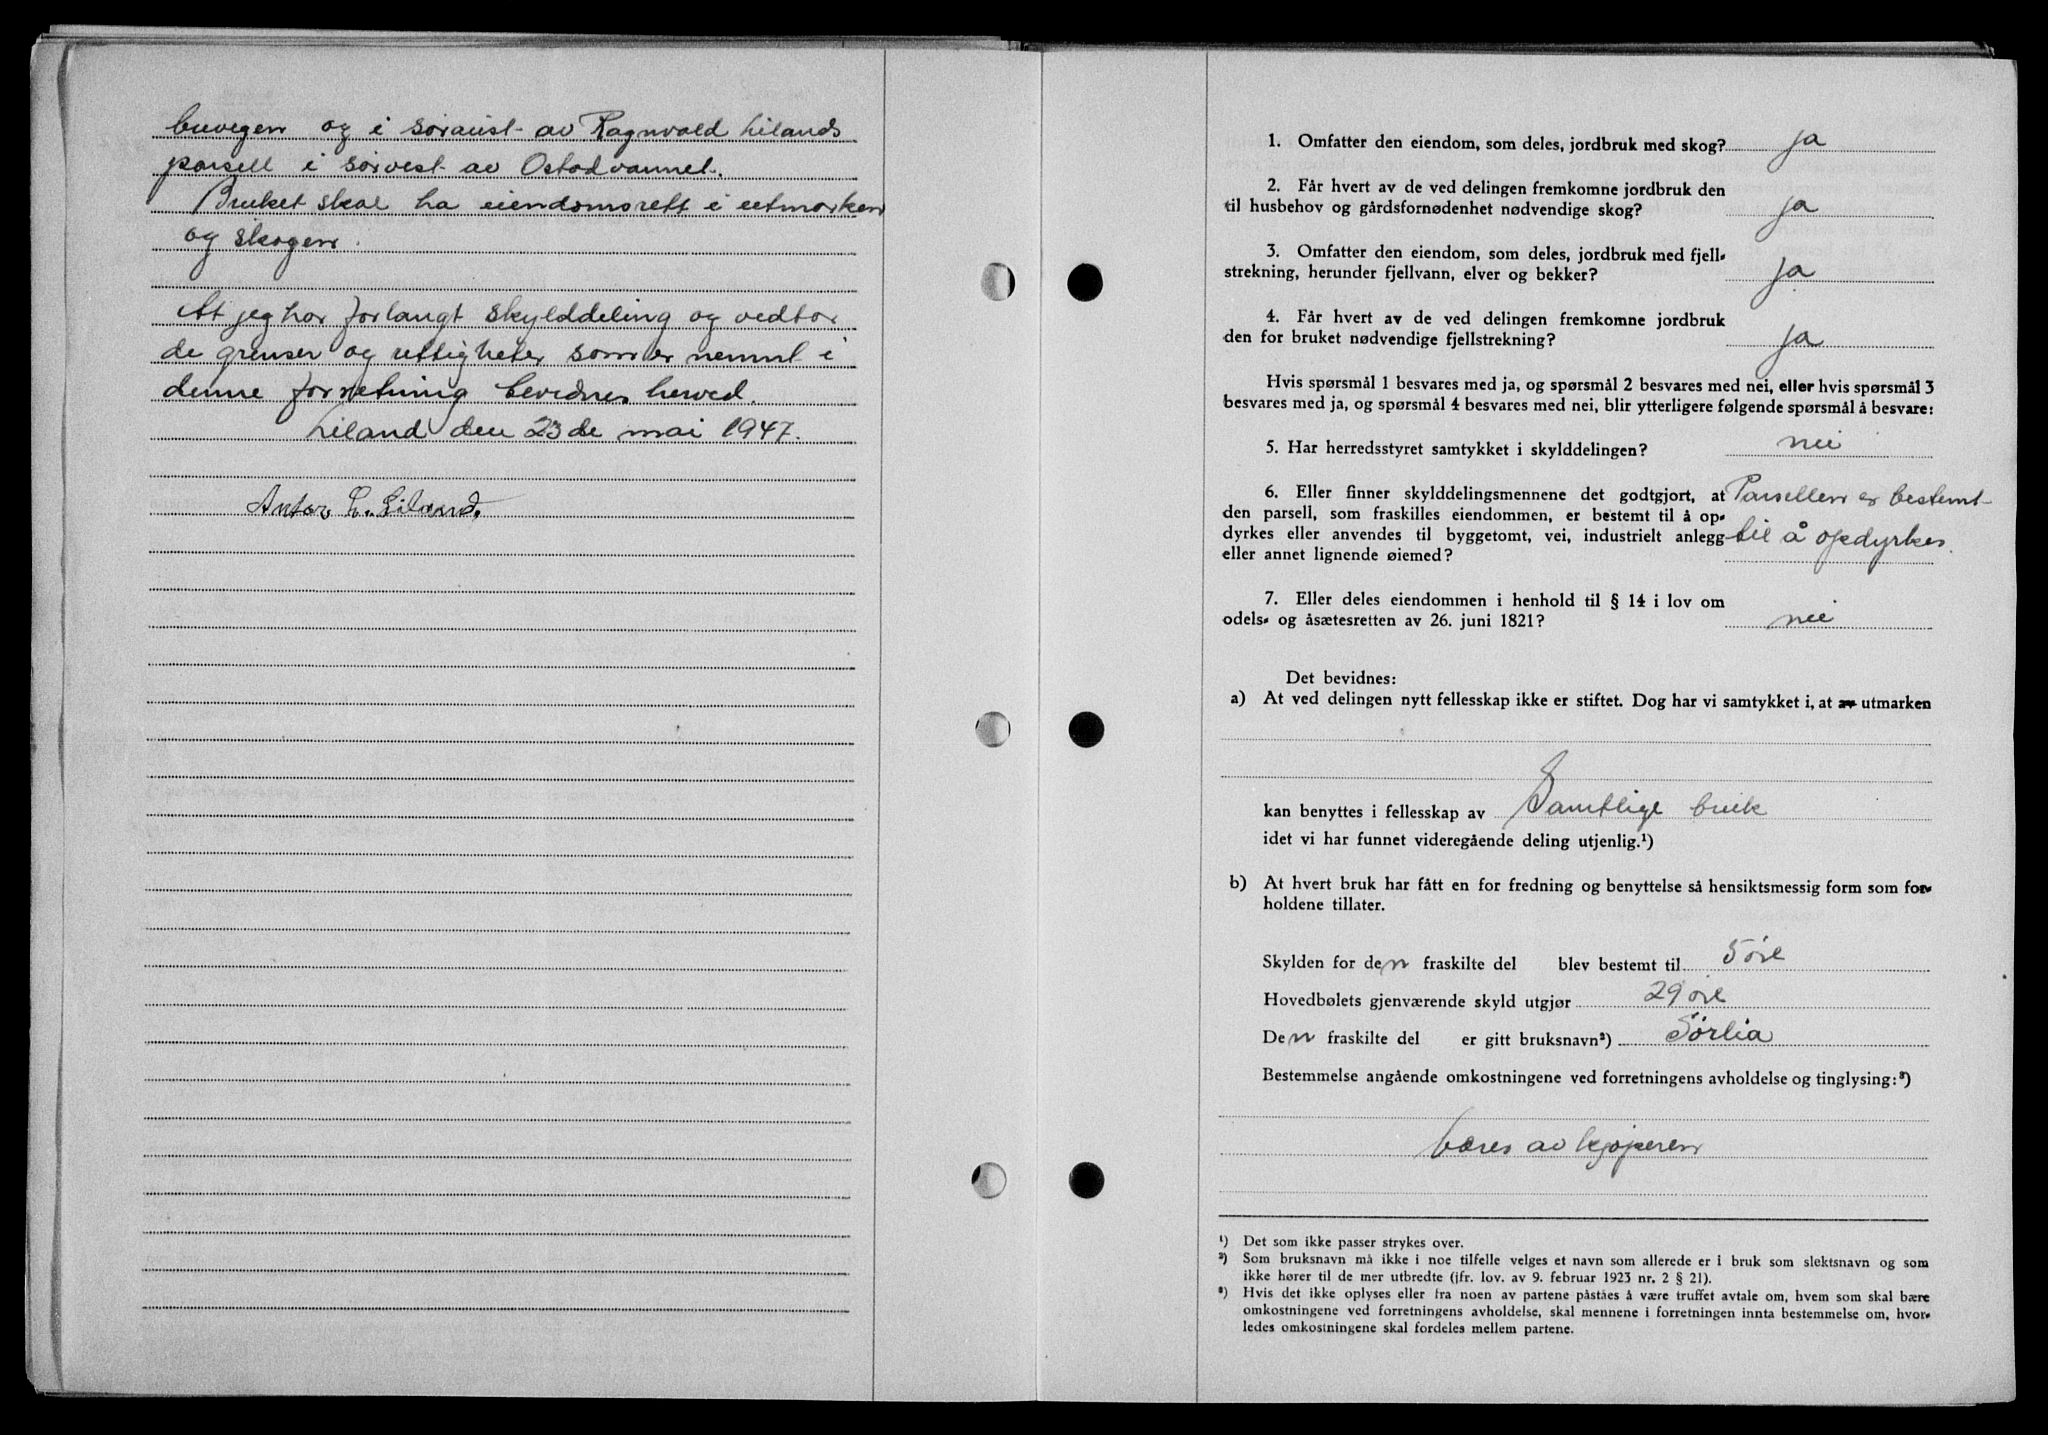 buvegen og i søraust av Ragnvald Lilands
parsell i sørvest av Ostadvannet.
Bruket skal ha eiendomsrett i utmarken
og skogen.
At jeg har forlangt skylddeling og vedtar
de grenser og rettigheter som er nemnt i
denne forretning bevidnes herved.
Liland den 23de mai 1947.
Anton L. Liland.
1. Omfatter den eiendom, som deles, jordbruk med skog? ja
2. Får hvert av de ved delingen fremkomne jordbruk den
til husbehov og gårdsfornødenhet nødvendige skog? ja
3. Omfatter den eiendom, som deles, jordbruk med fjell-
strekning, herunder fjellvann, elver og bekker? ja
4. Får hvert av de ved delingen fremkomne jordbruk
den for bruket nødvendige fjellstrekning? ja
Hvis spørsmål 1 besvares med ja, og spørsmål 2 besvares med nei, eller hvis spørsmål 3
besvares med ja, og spørsmål 4 besvares med nei, blir ytterligere følgende spørsmål å besvare:
5. Har herredsstyret samtykket i skylddelingen? nei
6. Eller finner skylddelingsmennene det godtgjort, at Parsellen er bestemt
den parsell, som fraskilles eiendommen, er bestemt til å op-
dyrkes eller anvendes til byggetomt, vei, industrielt anlegg til å opdyrkes.
eller annet lignende øiemed?
7. Eller deles eiendommen i henhold til § 14 i lov om
odels- og åsætesretten av 26. juni 1821? nei
Det bevidnes:
a) At ved delingen nytt fellesskap ikke er stiftet. Dog har vi samtykket i, at av utmarken
kan benyttes i fellesskap av Samtlige bruk
idet vi har funnet videregående deling utjenlig.¹)
b) At hvert bruk har fått en for fredning og benyttelse så hensiktsmessig form som for-
holdene tillater.
Skylden for den fraskilte del blev bestemt til 5 øre
Hovedbølets gjenværende skyld utgjør 29 øre
Den fraskilte del er gitt bruksnavn²) Sørlia
Bestemmelse angående omkostningene ved forretningens avholdelse og tinglysing:³)
bæres av kjøperen
¹) Det som ikke passer strykes over.
²) Som bruksnavn må ikke i noe tilfelle velges et navn som allerede er i bruk som slektsnavn og som
ikke hører til de mer utbredte (jfr. lov. av 9. februar 1923 nr. 2 § 21).
³) Hvis det ikke oplyses eller fra noen av partene påståes å være truffet avtale om, hvem som skal bære
omkostningene ved forretningens avholdelse, skal mennene i forretningen innta bestemmelse om, hvor-
ledes omkostningene skal fordeles mellem partene.